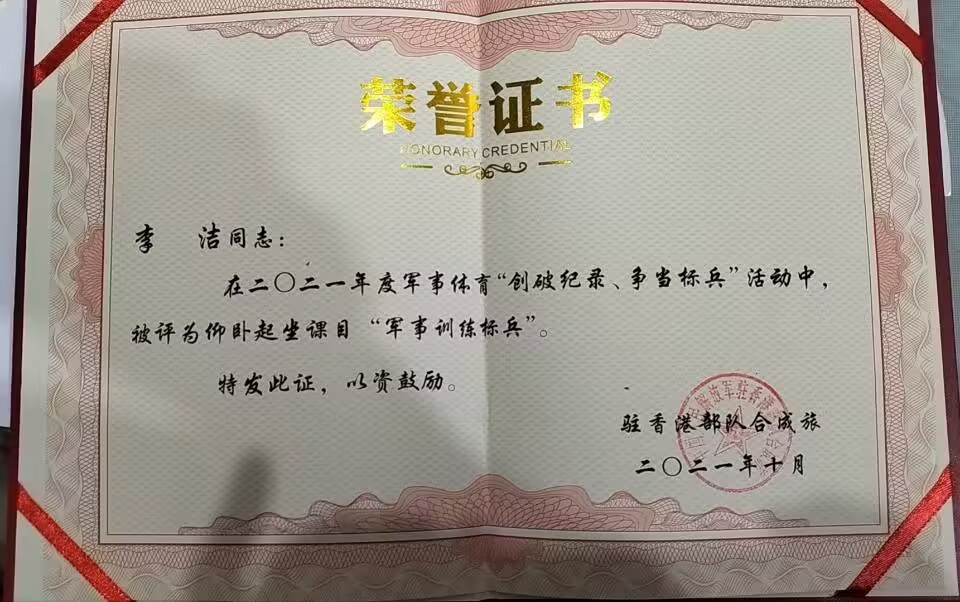 荣誉证书
HONORARY CREDENTIAL
李 洁同志：
在二〇二一年度军事体育“创破纪录、争当标兵”活动中，
被评为仰卧起坐课目“军事训练标兵”。
特发此证，以资鼓励。
驻香港部队合成旅
二〇二一年十月